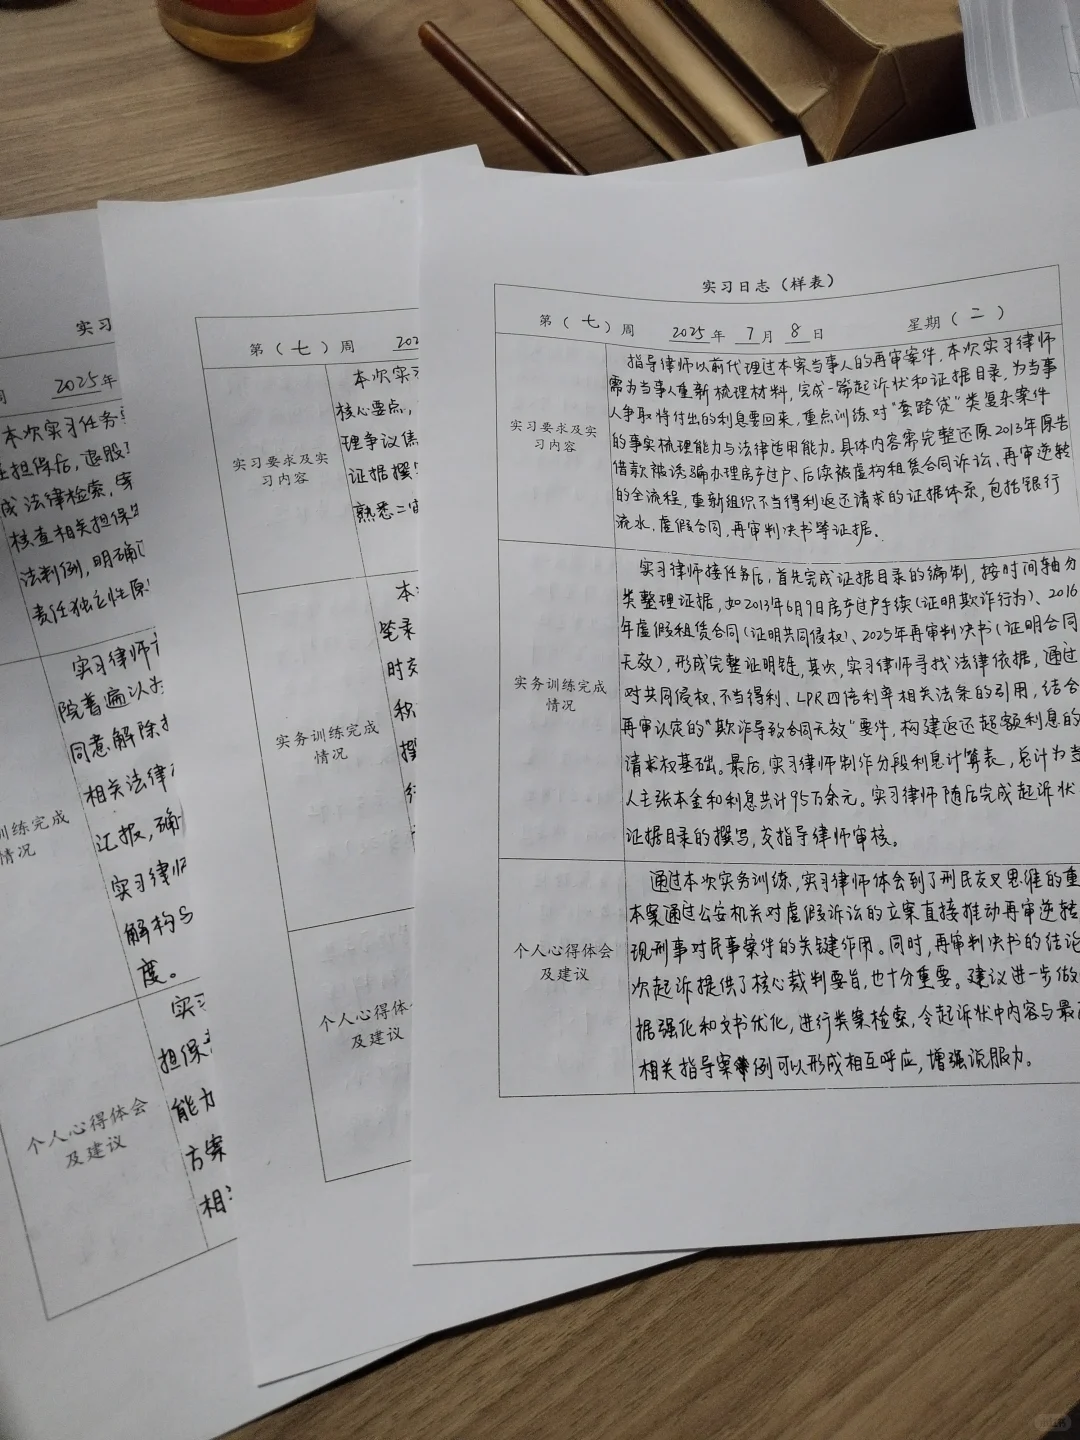 实习日志（样表）
第（七）周 2025年 7月 8日 星期（二）
实习要求及实
习内容
指导律师以前代理过本案当事人的再审案件，本次实习律师
需为当事人重新梳理材料，完成一篇起诉状和证据目录，为当事
人争取将付出的利息要回来，重点训练对“套路贷”类复杂案件
的事实梳理能力与法律适用能力。具体内容需完整还原2013年原告
借款被诱骗办理房产过户、后续被虚构租赁合同诉讼、再审逆转
的全流程，重新组织不当得利返还请求的证据体系，包括银行
流水、虚假合同、再审判决书等证据。
实务训练完成
情况
实习律师接任务后，首先完成证据目录的编制，按时间轴分
类整理证据，如2013年6月9日房产过户手续（证明欺诈行为）、2016
年虚假租赁合同（证明共同侵权）、2025年再审判决书（证明合同
无效），形成完整证明链，其次，实习律师寻找法律依据，通过
对共同侵权、不当得利、LPR四倍利率相关法条的引用，结合
再审认定的“欺诈导致合同无效”要件，构建返还超额利息的
请求权基础。最后，实习律师制作分段利息计算表，总计为当
人主张本金和利息共计95万余元。实习律师随后完成起诉状
证据目录的撰写，交指导律师审核。
个人心得体会
及建议
通过本次实务训练，实习律师体会到了刑民交叉思维的重
本案通过公安机关对虚假诉讼的立案直接推动再审逆转
现刑事对民事案件的关键作用。同时，再审判决书的结论
次起诉提供了核心裁判要旨，也十分重要。建议进一步做
据强化和文书优化，进行类案检索，令起诉状中内容与最高
相关指导案例可以形成相互呼应，增强说服力。
第（七）周 202
实习要求及实
习内容
本次实习
核心要点，
理争议焦
证据撰
熟悉二审
实务训练完成
情况
本
笔录
时交
秋
撰
行
个人心得体会
及建议
实习
2025年
本次实习任务
担保后，退股
成法律检索，
核查相关担保
法判例，明确
责任独立性原
训练完成
情况
实习律师
院普遍认为
同意解除
相关法律
汇报，确
实习律师
解构
度。
个人心得体会
及建议
实习
担保
能力
方案
相